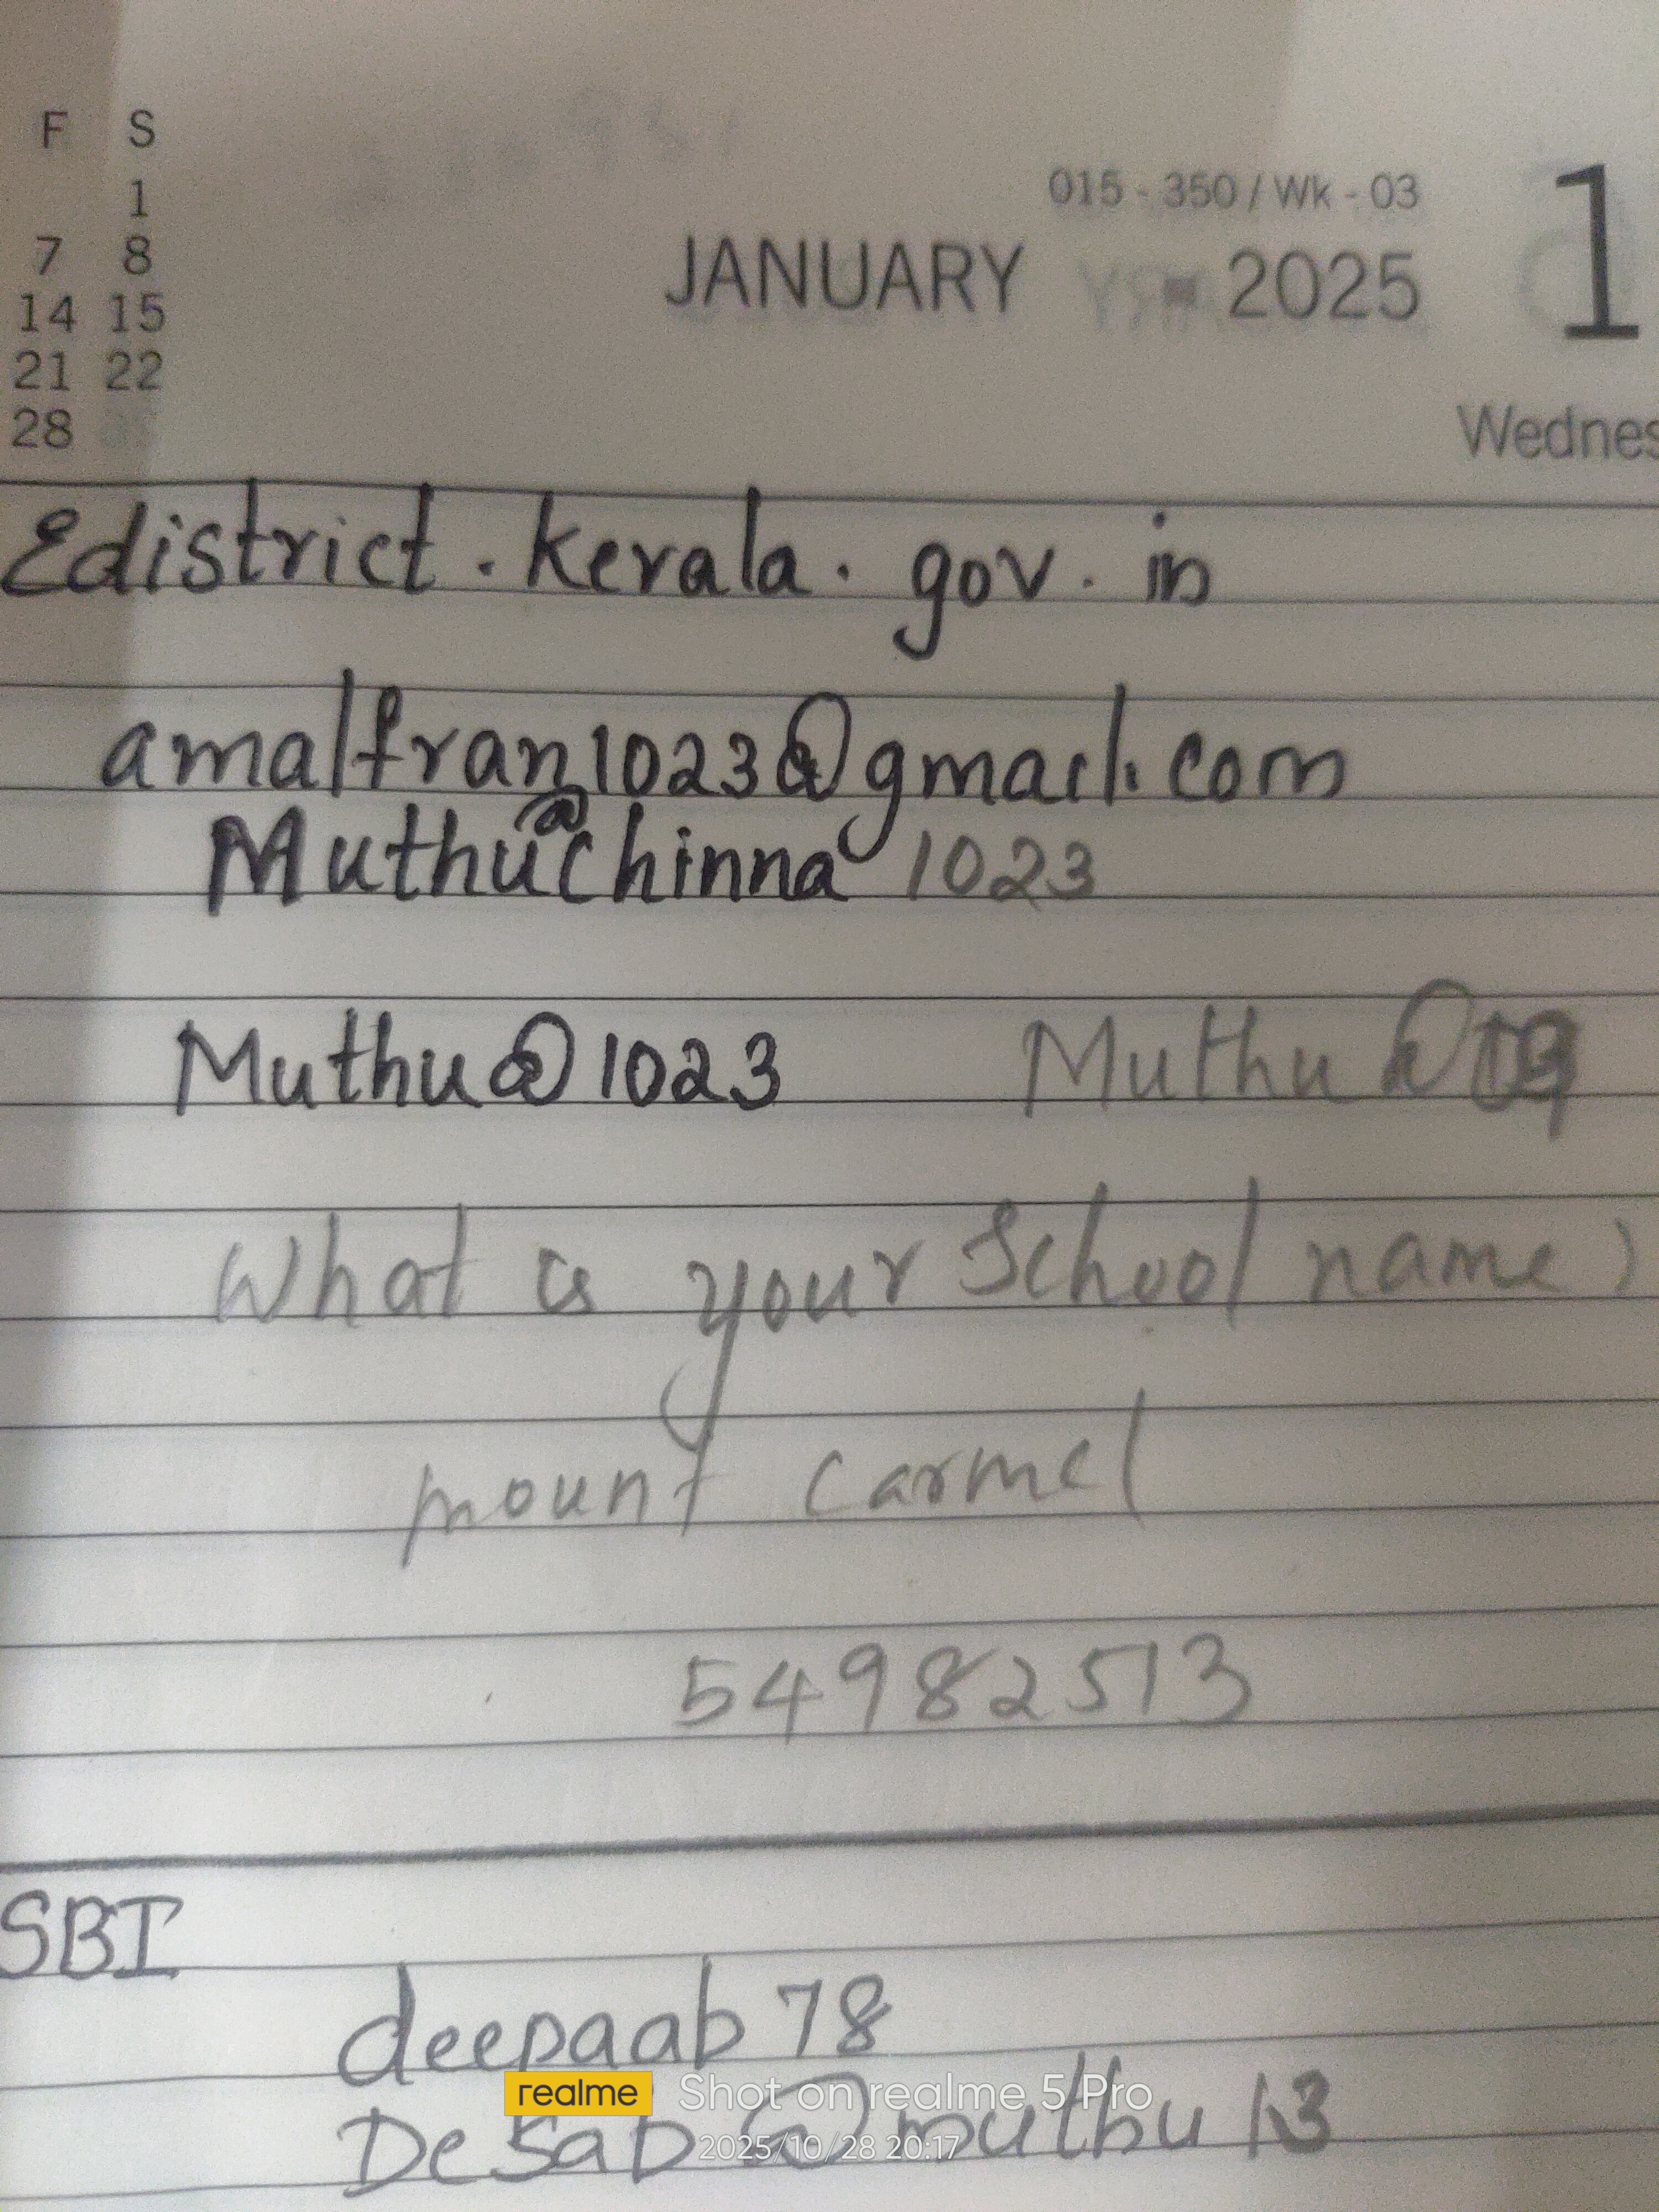 F S
1
7 8
14 15
21 22
28
015 - 350 / Wk - 03
JANUARY 2025 1
Edistrict.kerala.gov.in
amalfran1023@gmail.com
Muthu@Chinna1023
Muthu@1023 Muthu@
What is your School name?
mount carmel
54982513
SBI
deepaab78
@muthu13
realme Shot on realme 5 Pro
2025/10/28 20:17